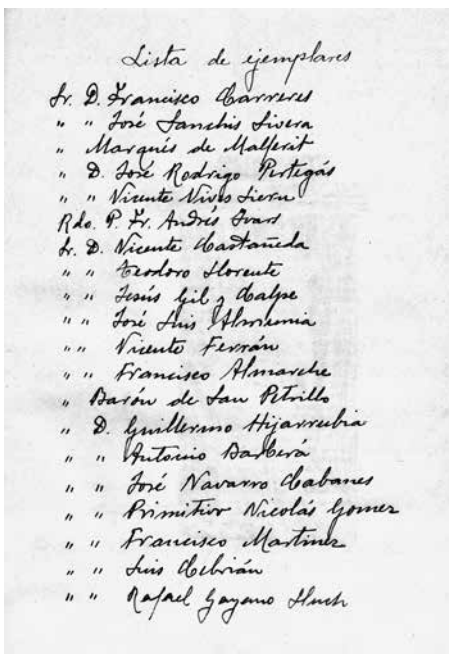 Lista de ejemplares
Sr. D. Francisco Carreres
" " José Sanchis Sivera
" Marqués de Malferit
" D. José Rodrigo Pertegás
" " Vicente Vives Liern
Rdo. P. Fr. Andrés Ivars
Sr. D. Vicente Castañeda
" " Teodoro Llorente
" " Jesús Gil y Calpe
" " José Luis Almunia
" " Vicente Ferrán
" " Francisco Almarche
" Barón de San Petrillo
" D. Guillermo Hijarrubia
" " Antonio Barberá
" " José Navarro Cabanes
" " Primitivo Nicolás Gómez
" " Francisco Martinez
" " Luis Cebrián
" " Rafael Gayano Lluch